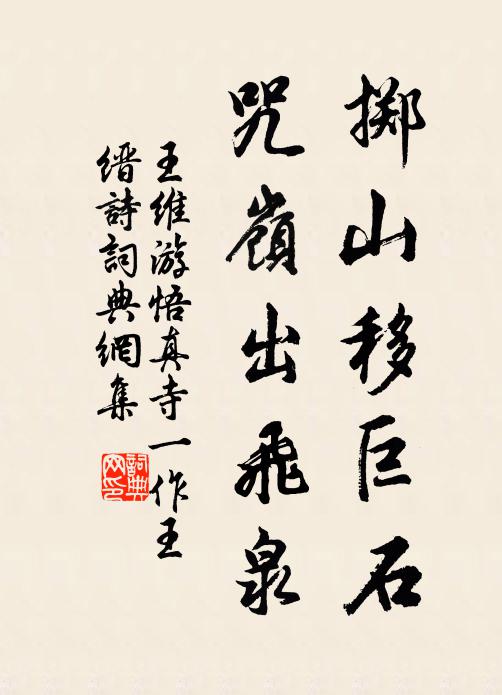 掷山移巨石
咒嶺出飛泉
王維游悟真寺一作王
縉詩詞典網集
詞典
网印